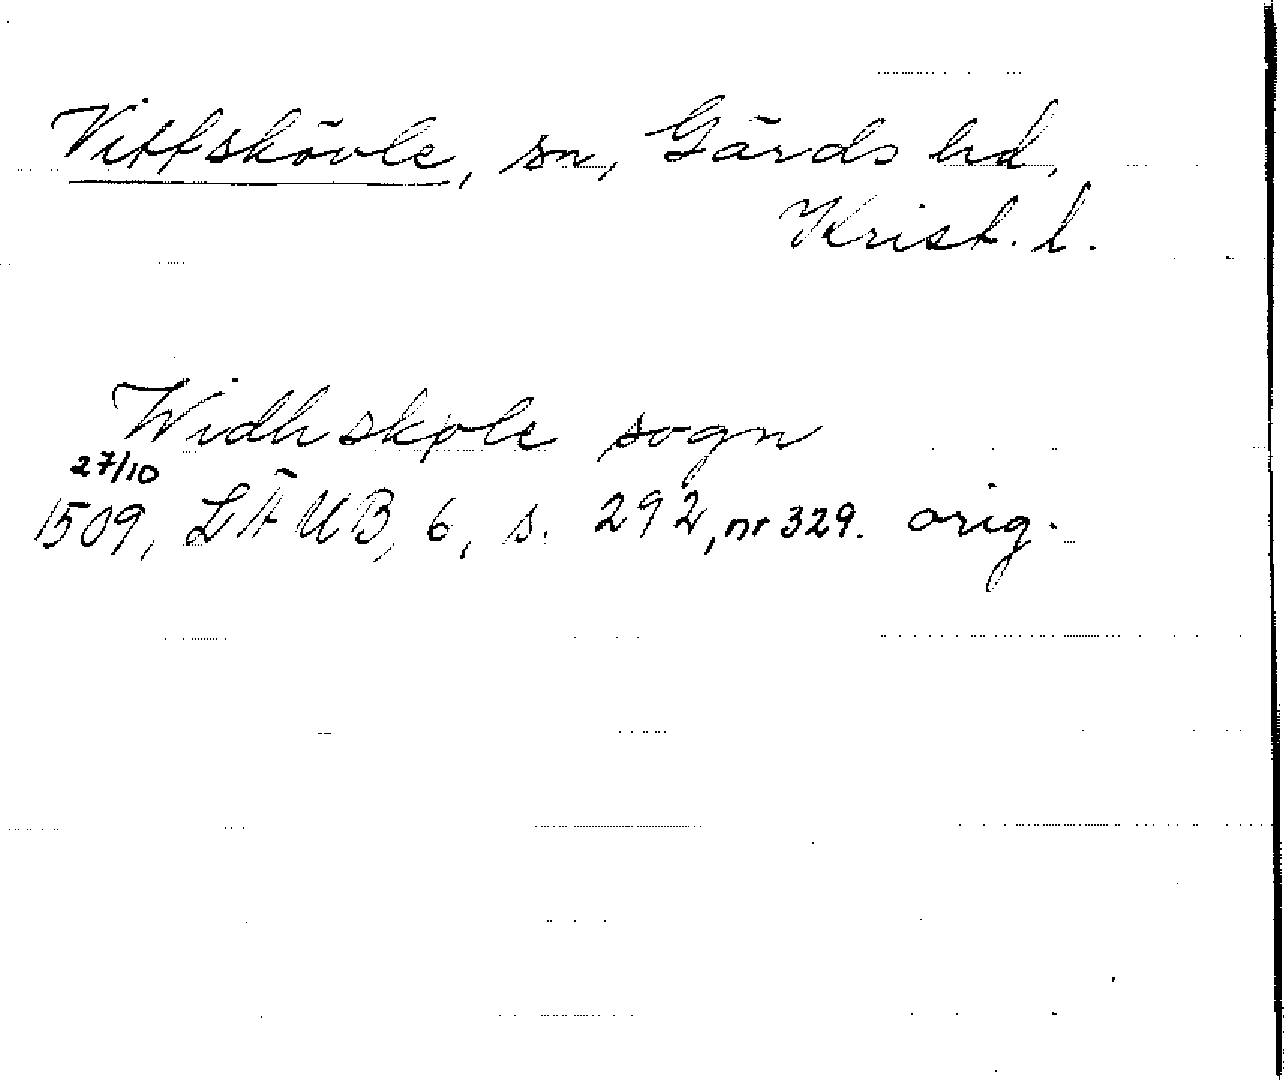 Vittskövle, sn, Gärds hd,
Krist. l.
Widhskøle sogn
27/10
1509, LÄUB, 6, s. 292, nr 329. orig.